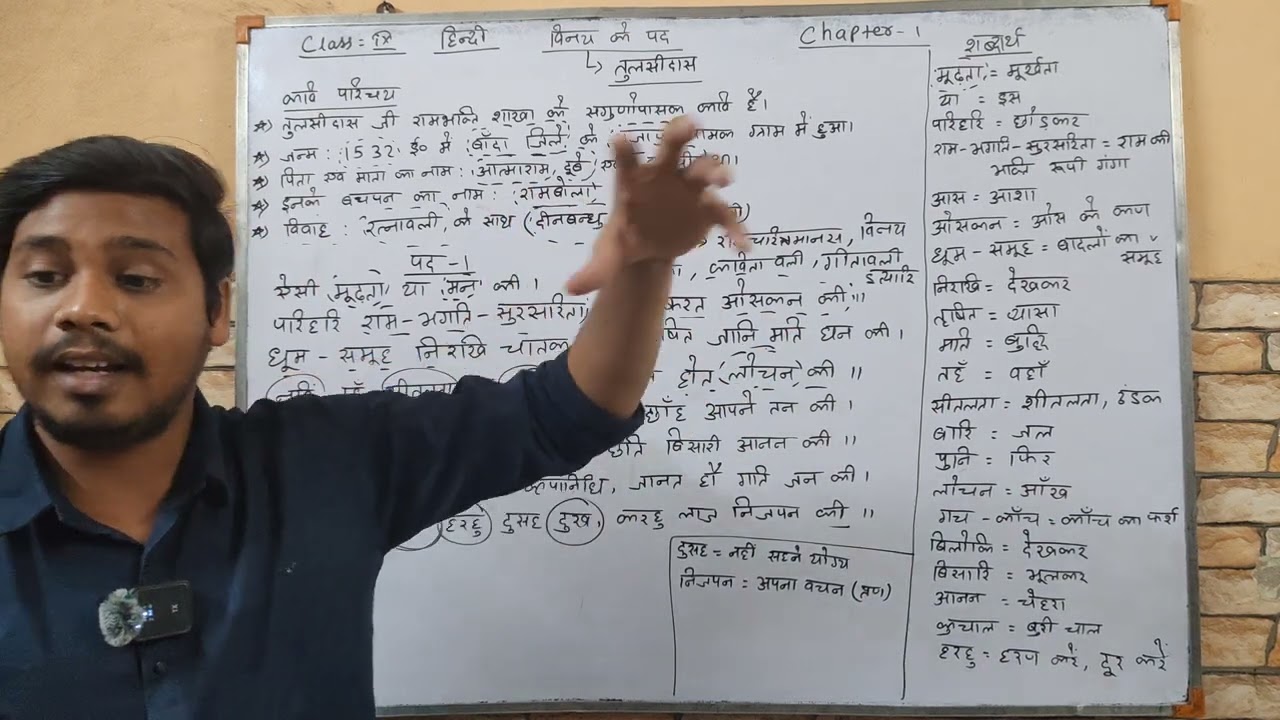 Class: IX हिन्दी विनय के पद Chapter-1
↳ तुलसीदास
कवि परिचय
* तुलसीदास जी रामभक्ति शाखा के सगुणोपासक कवि हैं।
* जन्म : 1532 ई० में बाँदा जिले के ग्राम में हुआ।
* पिता एवं माता का नाम : आत्माराम, हुबे
* इनके बचपन का नाम : रामबोला
* विवाह : रत्नावली, के साथ (दीनबन्धु
चरितमानस, विनय
कविता वली, गीतावली
इत्यादि
पद-1
ऐसी मूढ़ता या मन की।
परिहरि राम-भगति-सुरसरिता करत ओसकन की॥
धूम-समूह निरखि चातक जानि मति घन की।
होत लोचन की॥
छाँह आपने तन की।
बिसारी आनन की॥
कृपानिधि, जानत हौ गति जन की।
हरहु दुसह दुख, करहु लाज निजपन की॥
दुसह = नहीं सहने योग्य
निजपन = अपना वचन (प्रण)
शब्दार्थ
मूढ़ता = मूर्खता
या = इस
परिहरि = छोड़कर
राम-भगति-सुरसरिता = राम की
भक्ति रूपी गंगा
आस = आशा
ओसकन = ओस के कण
धूम-समूह = बादलों का समूह
निरखि = देखकर
तृषित = प्यासा
मति = बुद्धि
तहँ = वहाँ
सीतलता = शीतलता, ठंडक
बारि = जल
पुनि = फिर
लोचन = आँख
गच-काँच = काँच का फर्श
बिलोकि = देखकर
बिसारि = भूलकर
आनन = चेहरा
कुचाल = बुरी चाल
हरहु = हरण करें, दूर करें